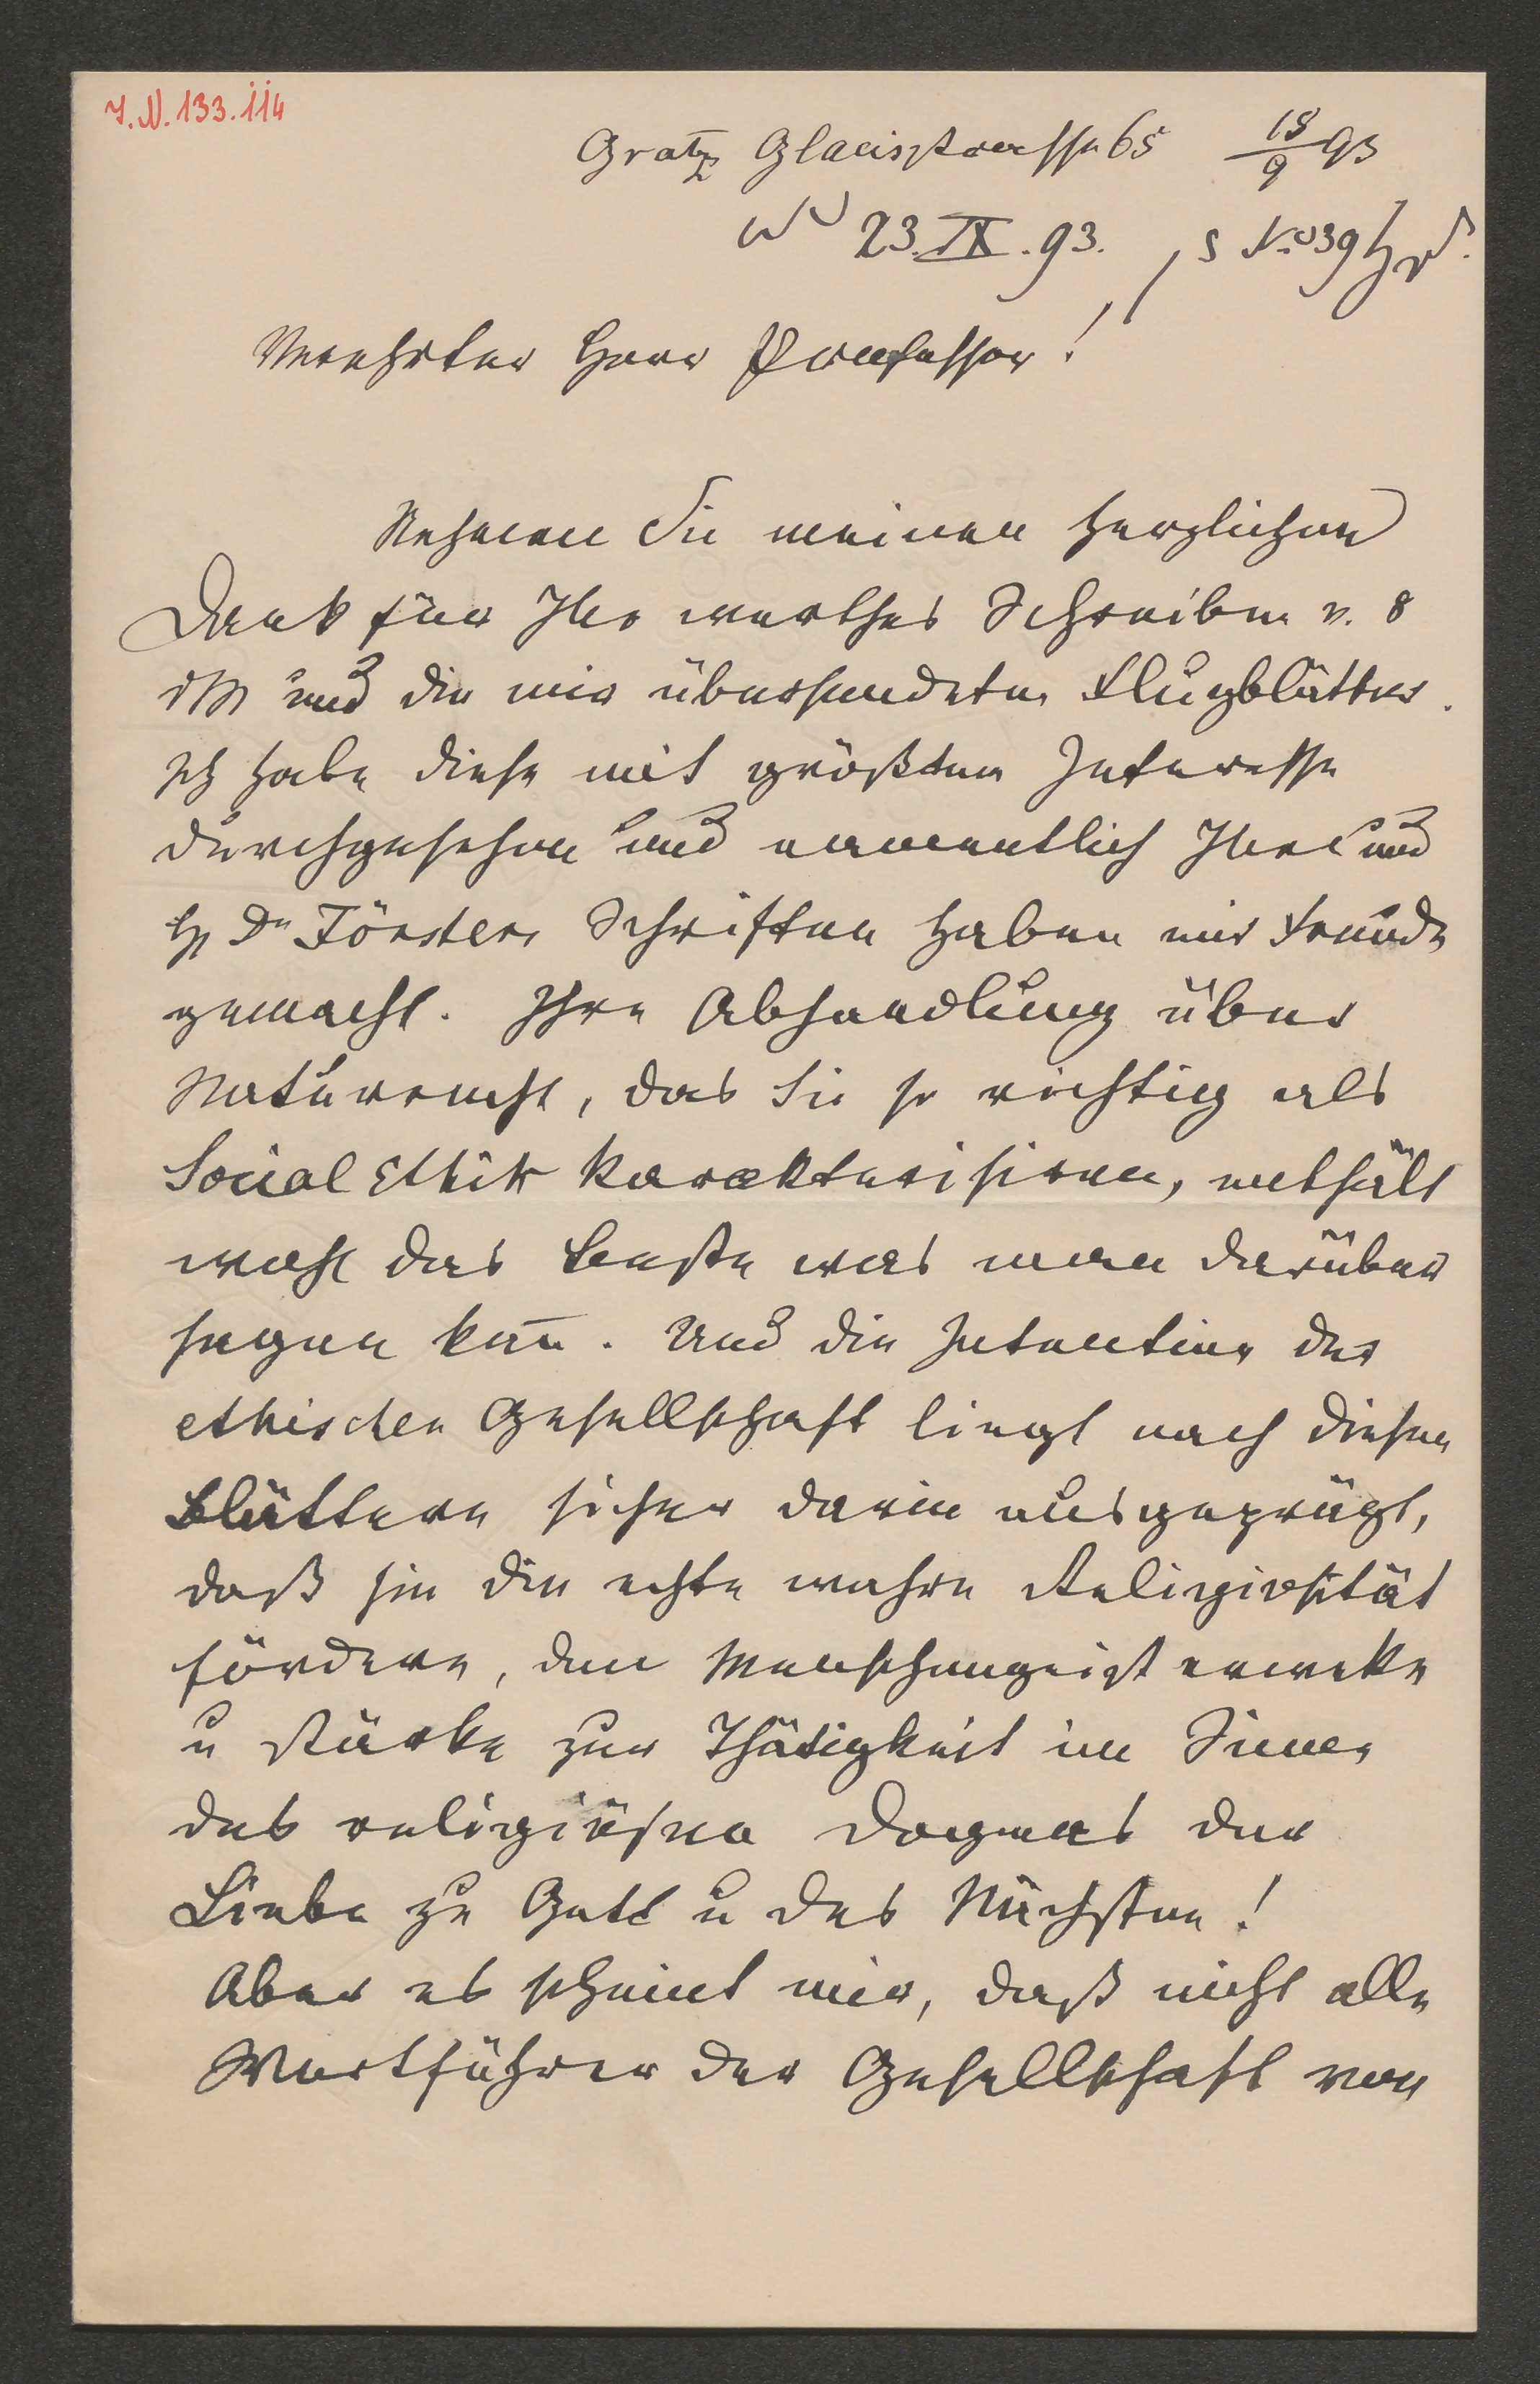 I.N. 133.114
Gratz Glacisstrasse 65 18/9 93
23.IX.93.
Verehrter Herr Professor!
Nehmen Sie meinen herzlichen
Dank für Ihr werthes Schreiben v. 8
dM und die mir übersendeten Flugblätter.
Ich habe diese mit größtem Interesse
durchgesehen und namentlich Ihre und
H Dr Försters Schriften haben mir Freude
gemacht. Ihre Abhandlung über
Naturrecht, das Sie so richtig als
Social Ethik karakterisiren, enthält
wohl das Beste was man darüber
sagen kan̄. Und die Intention der
ethischen Gesellschaft liegt nach diesen
Blättern sicher darin ausgeprägt,
daß sie die echte wahre Religiosität
fördere, den Menschengeist erweke
u stärke zur Thätigkeit im Sinne
des religiösen Dogmas der
Liebe zu Gott u des Nächsten!
Aber es scheint mir, daß nicht alle
Wortführer der Gesellschaft von